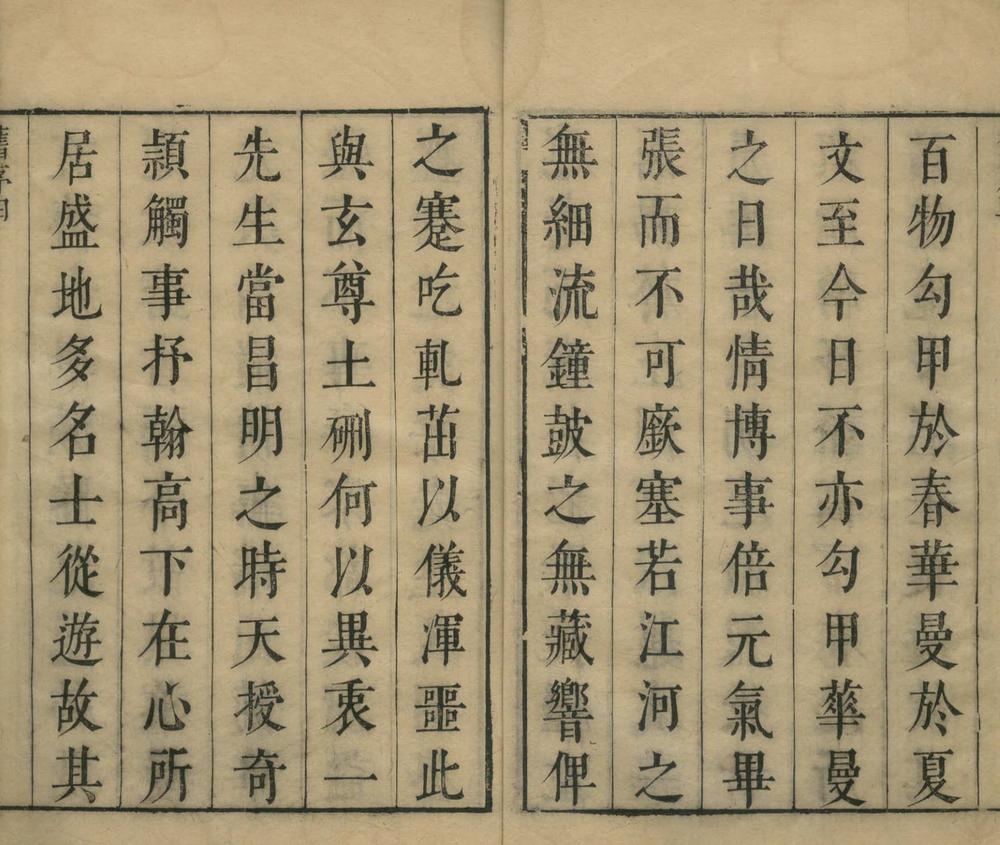 百物勾甲於春華曼於夏
文至今日不亦勾甲華曼
之日哉情博事倍元氣畢
張而不可厫塞若江河之
無細流鐘鼓之無藏響俾
之蹇吃軋茁以儀渾噩此
與玄尊土硎何以異袠一
先生當昌明之時天授奇
頴觸事抒翰高下在心所
居盛地多名士從遊故其